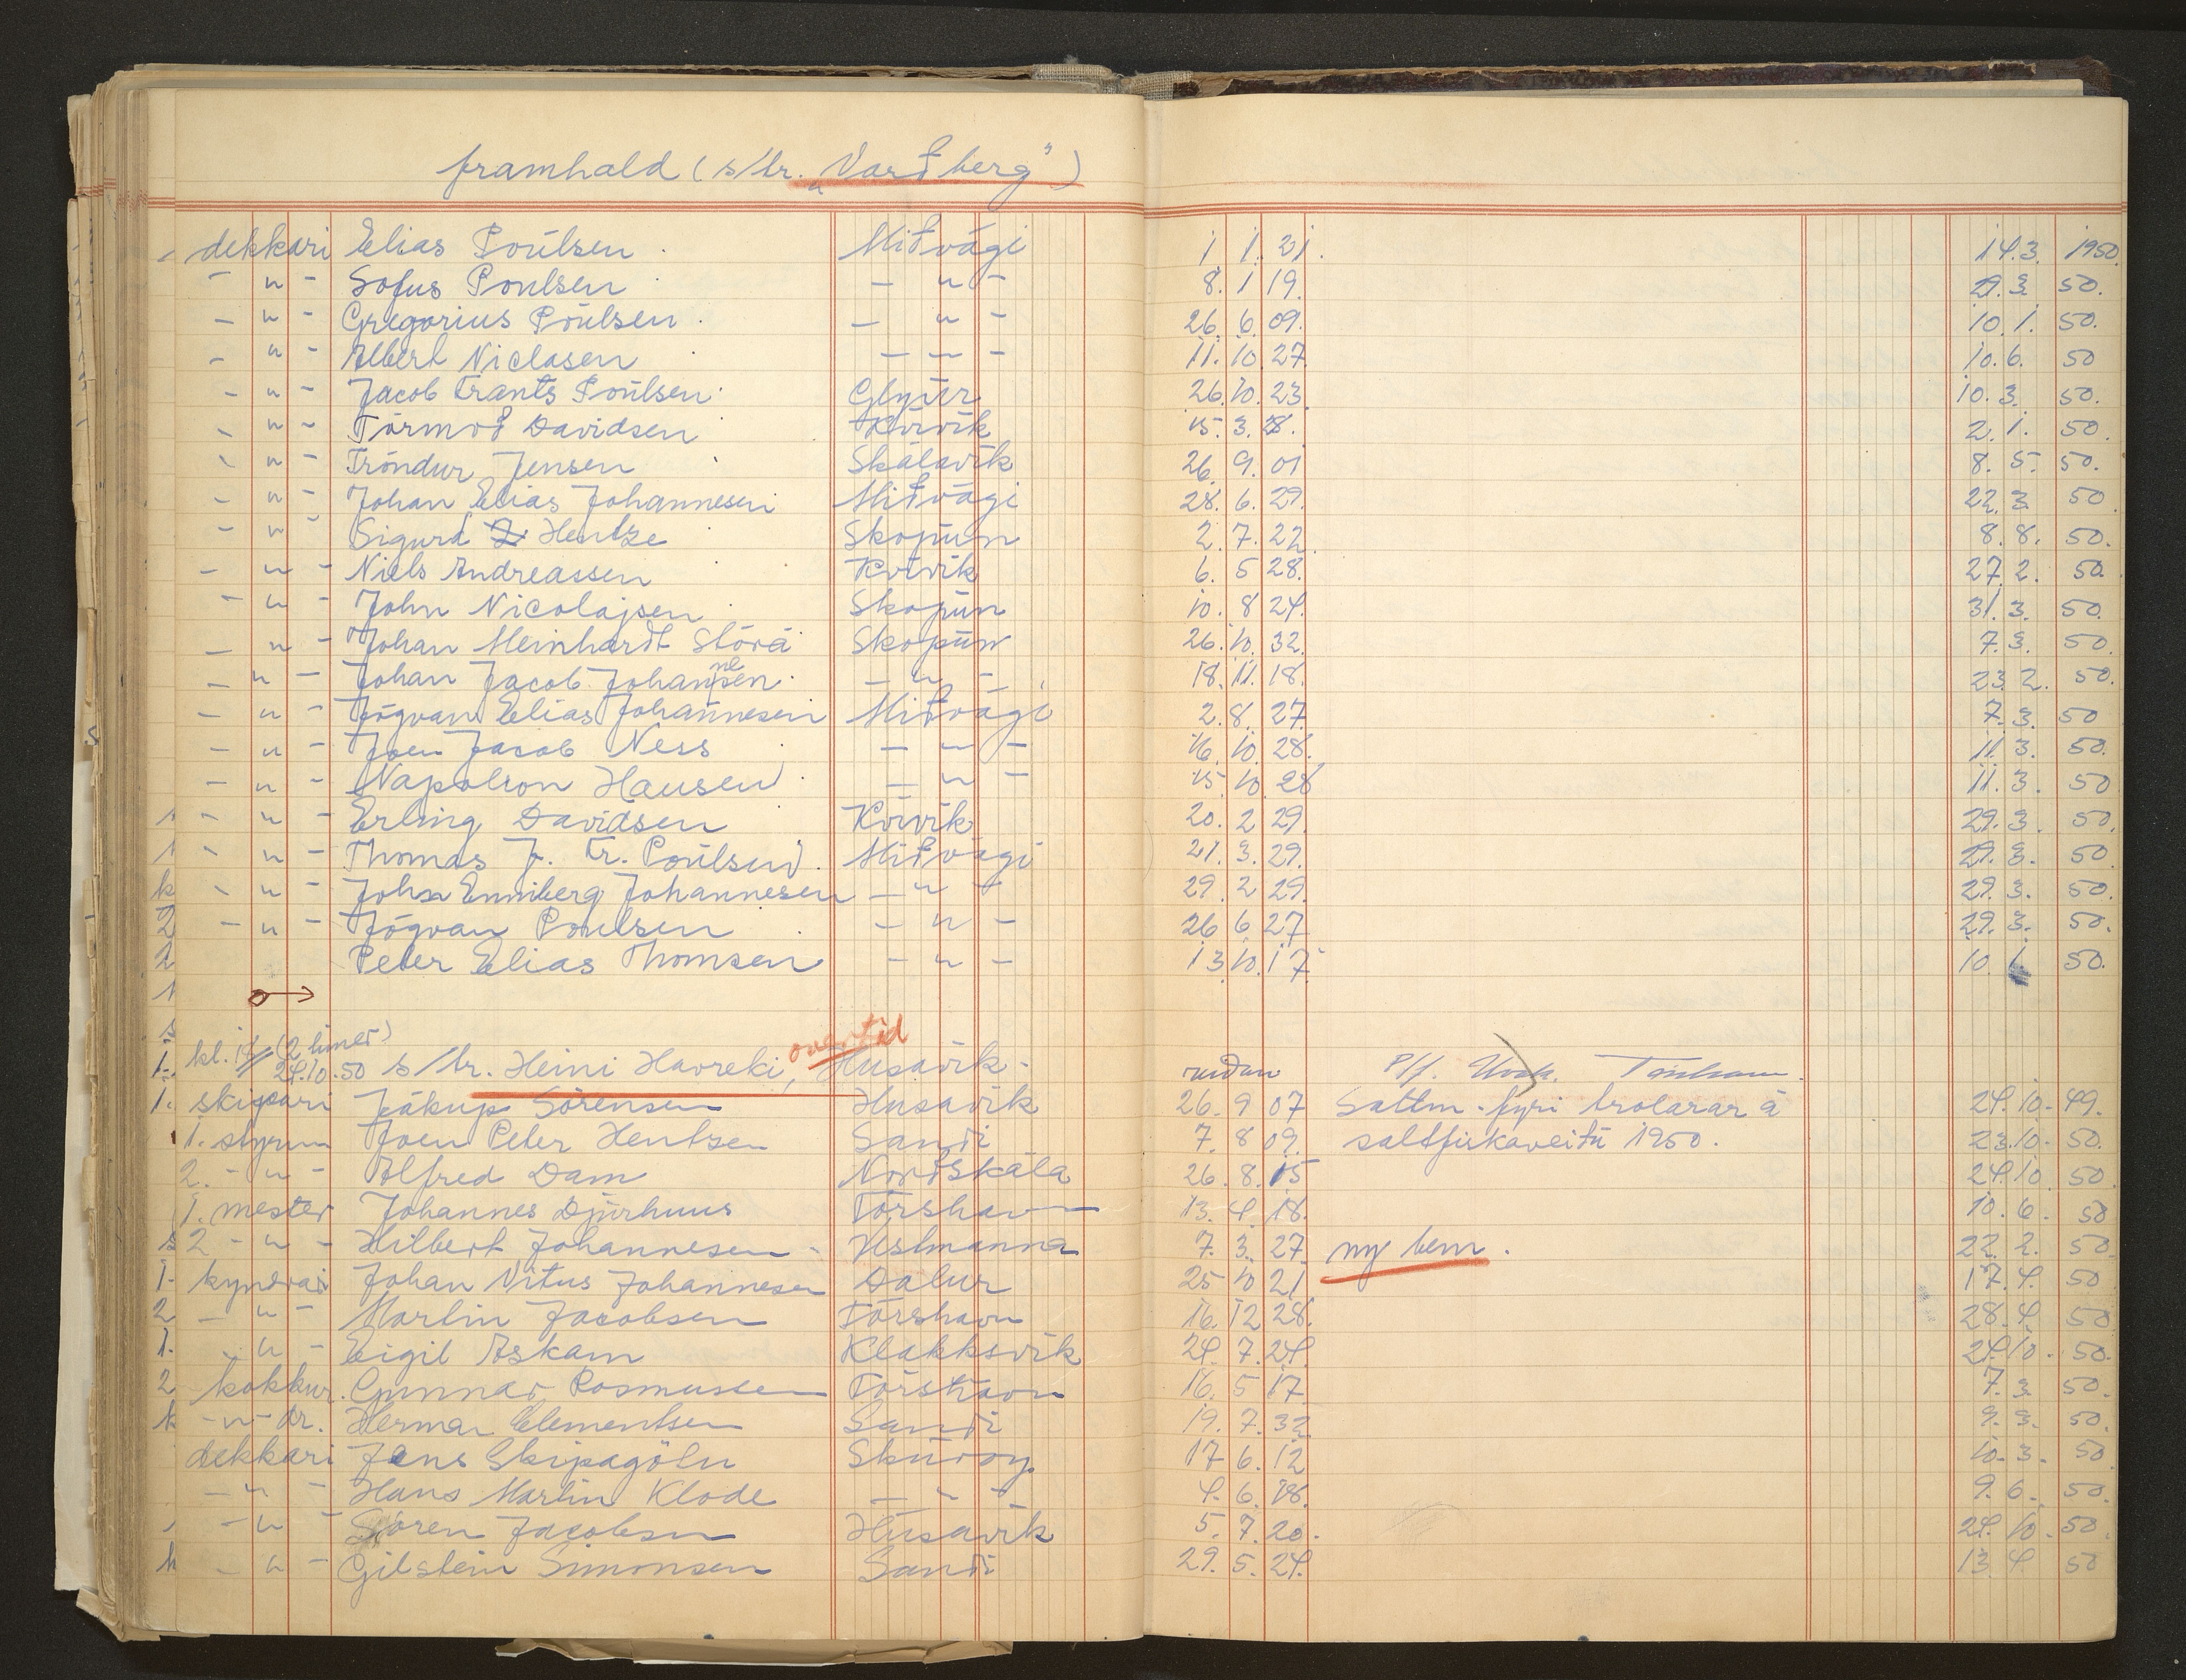 framhald (s/tr. "Vardberg")
dekkari Elias Poulsen Miðvági 1. 1. 21. 14. 3. 1950.
- " - Sofus Poulsen - " - 8. 1 19. 29. 3. 50.
- " - Gregorius Poulsen - " - 26. 6. 09. 10. 1. 50.
- " - Albert Niclasen - - - 11. 10. 27. 10. 6. 50
- " - Jacob Frants Poulsen Glyvur 26. 10. 23. 10. 3. 50.
- " - Tormoð Davidsen Kvívík 15. 3. 28. 2. 1. 50.
- " - Tróndur Jensen Skálavík 26. 9. 01 8. 5. 50.
- " - Johan Elias Johannesen Miðvági 28. 6. 29. 22. 3 50.
- " - Sigurd Hentze Skopun 2. 7. 22. 8. 8. 50.
- " - Niels Andreassen Kvívík 6. 5 28. 27. 2. 50.
- " - John Nicolajsen Skopun 10. 8 24. 31. 3. 50.
- " - Johan Meinhardt Stórá Skopun 26. 10. 32. 7. 3. 50.
- " - Johan Jacob Johannesen - " - 18. 11. 18. 23. 2. 50.
- " - Jógvan Elias Johannesen Miðvági 2. 8. 27. 7. 3. 50
- " - Joen Jacob Ness - " - 16. 10. 28. 11. 3. 50.
- " - Napoleon Hansen - " - 15. 10. 28 11. 3. 50
1 - " - Erling Davidsen Kvívík 20. 2 29. 29. 3. 50.
1 - " - Thomas J. Fr. Poulsen Miðvági 21. 3. 29. 29. 3. 50.
k - " - John Enniberg Johannesen - " - 29. 2 29. 29. 3. 50.
2 - " - Jógvan Poulsen - " - 26 6 27 29. 3. 50.
2 Peter Elias Thomsen - " - 13. 10. 17. 10. 1. 50.
1
s
kl. 17 (2 tímer) overtid
1. 24.10.50 s/tr. Heini Havreki, Húsavík -
1. skipari Jákup Sörensen Húsavík 26. 9 07 Saltm. fyri trolarar á 24. 10. 49.
1. styrm Joen Peter Hentzen Sandi 7. 8 09. saltfiskaveiðu 1950. 23. 10. 50.
2. - " - Alfred Dam Norðskála 26. 8. 15 24. 10. 50.
1. mester Johannes Djurhuus Tórshavn 13. 4. 18. 10. 6. 50
s 2 - " - Hilbert Johannesen Vestmanna 7. 3. 27. ny bem. 22. 2. 50.
1 - kyndari Johan Vitus Johannesen Dalur 25 10 21 17. 4. 50
2 - " - Martin Jacobsen Tórshavn 16. 12 28. 28. 4. 50
1. - " - Eigil Askam Klakksvík 24. 7. 24. 24. 10. 50.
2 kokkur Gunnar Rasmussen Tórshavn 16. 5 17. 7. 3. 50.
k - " - dr. Herman Clementsen Sandi 19. 7. 32 9. 3. 50.
dekkari Jens Skipagötu Skúvoy 17 6. 12 10. 3. 50
- " - Hans Martin Klode - " - 4. 6. 18. 9. 6. 50.
- " - Sören Jacobsen Húsavík 5. 7. 20. 24. 10. 50.
k - " - Gilstein Simonsen Sandi 29. 5. 24. 13. 4. 50